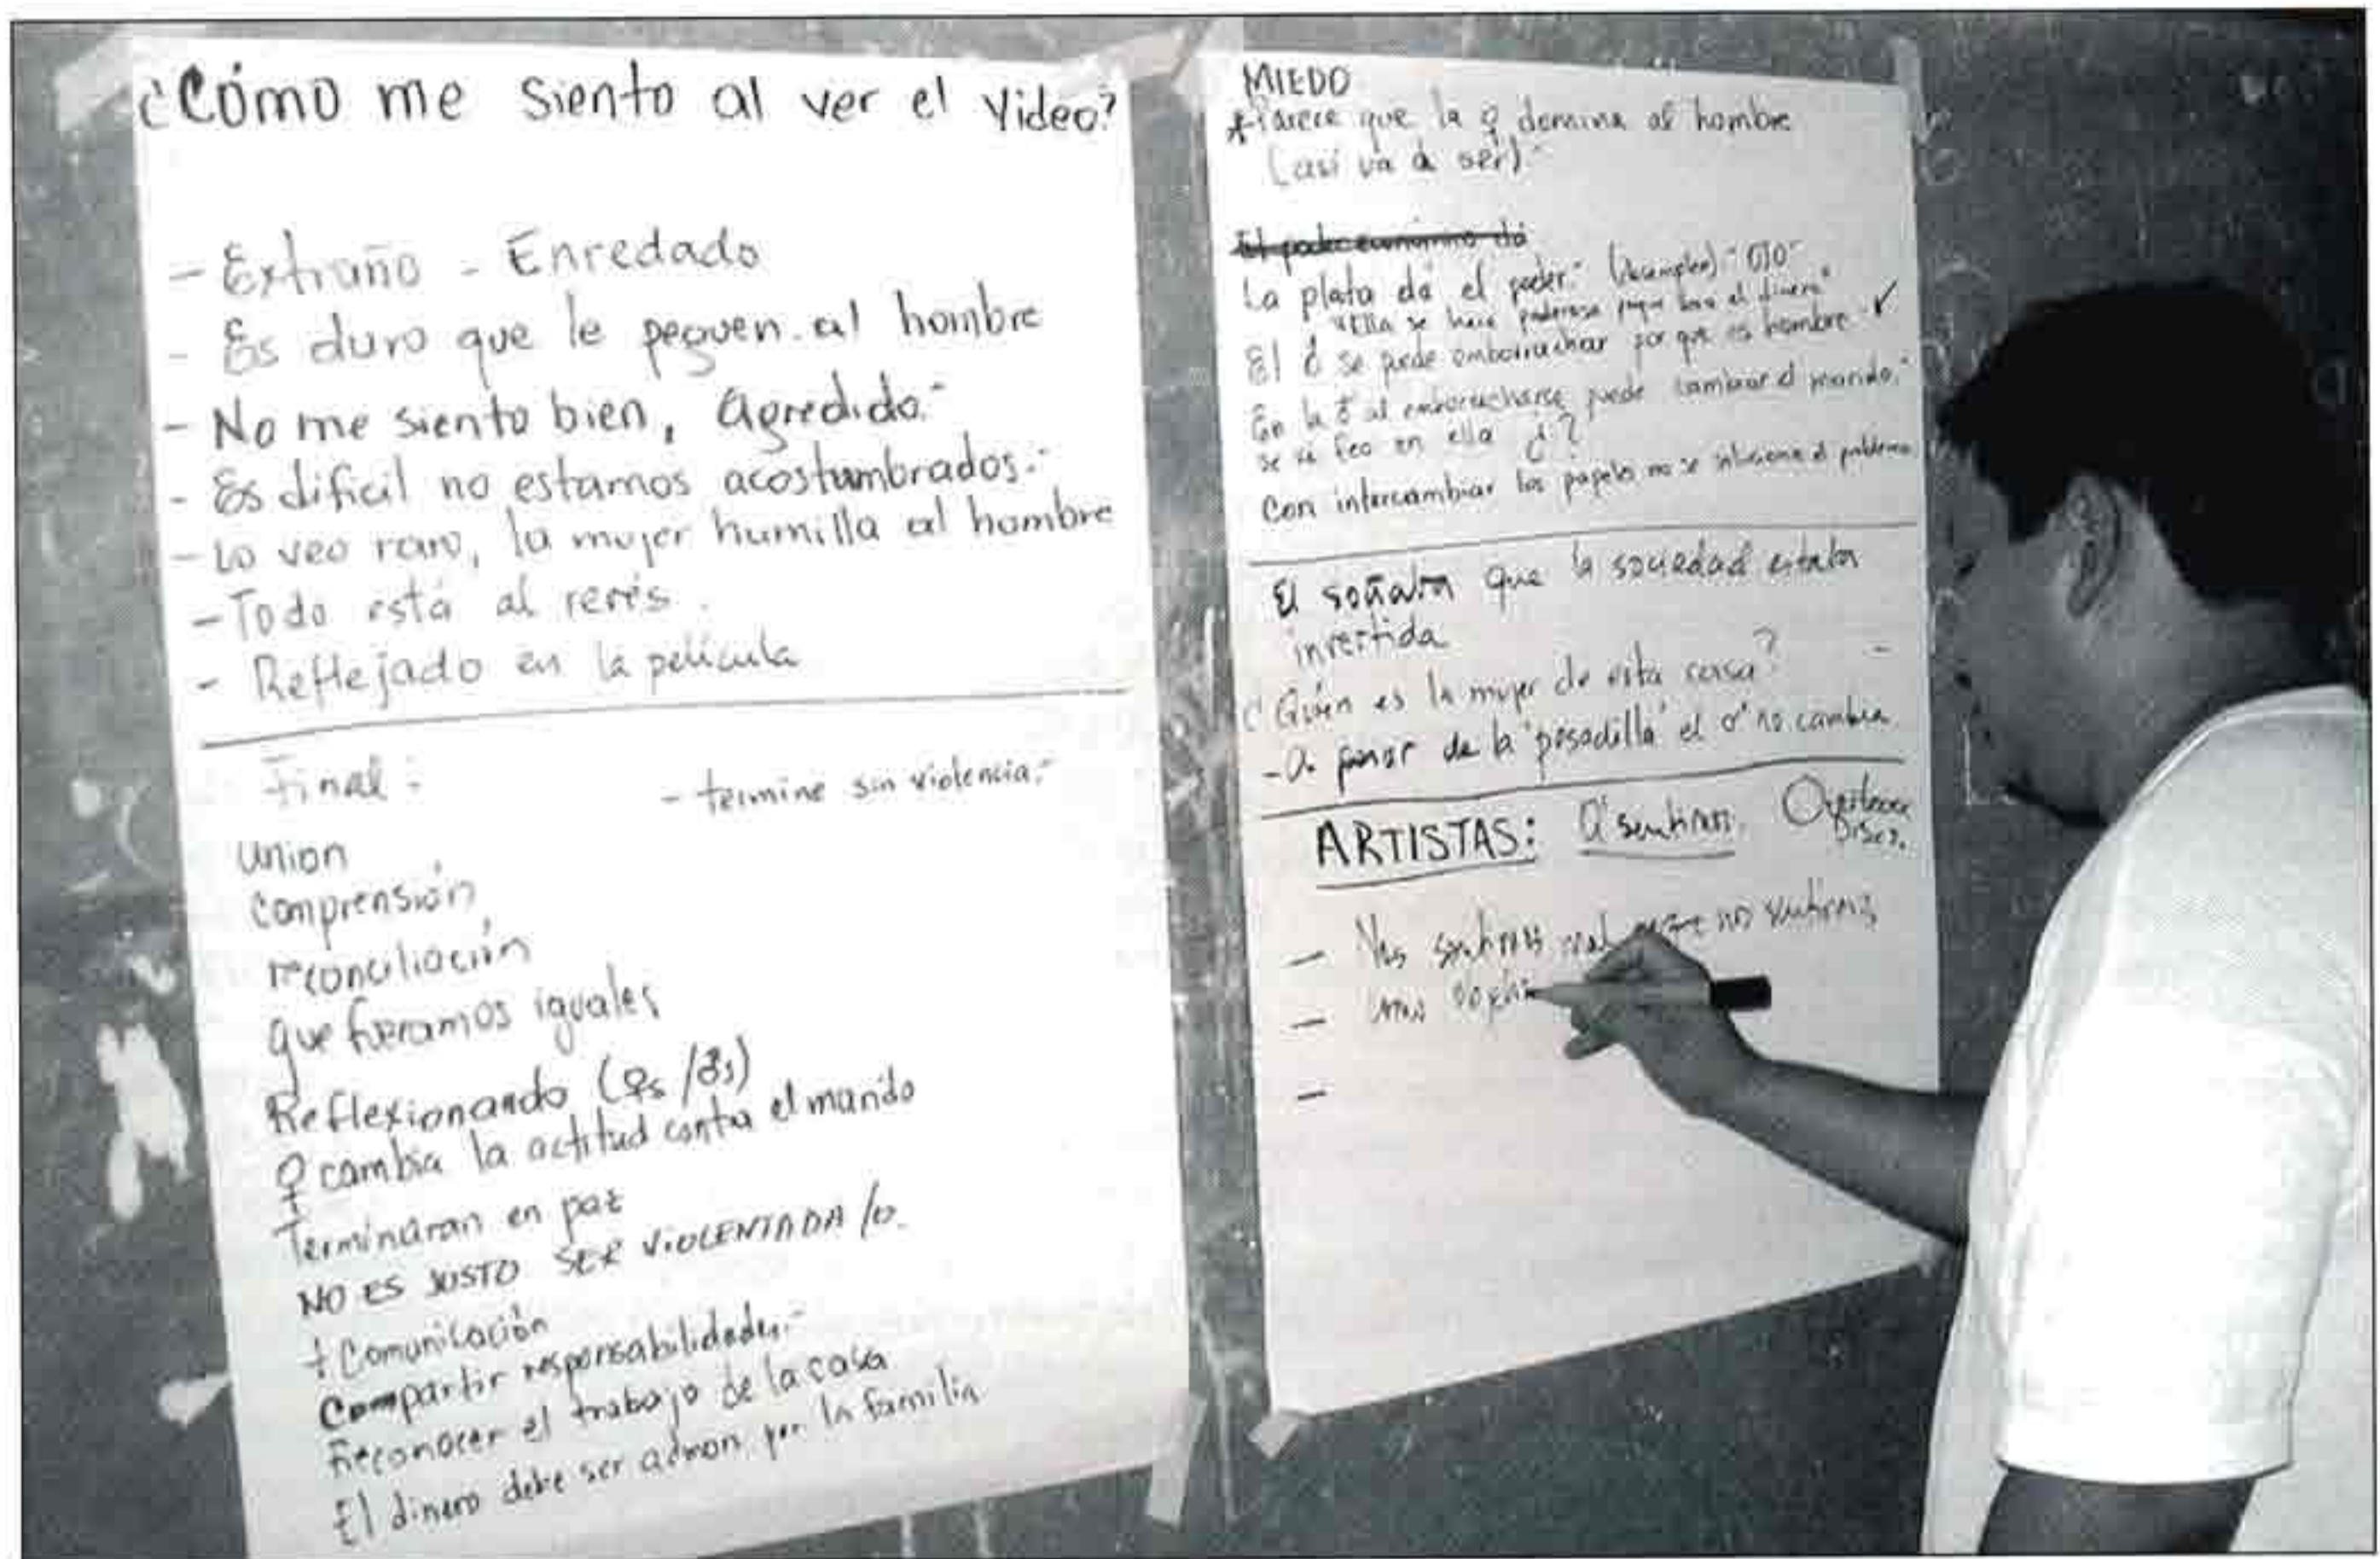 ¿Cómo me siento al ver el video?
- Extraño - Enredado
- Es duro que le peguen al hombre
- No me siento bien, agredido.-
- Es dificil no estamos acostumbrados.-
- Lo veo raro, la mujer humilla al hombre
- Todo está al revés.
- Reflejado en la película
Final:
- termine sin violencia.-
Union
comprensión
reconciliación
que fueramos iguales
Reflexionando (♀s/♂s)
♀ cambia la actitud contra el marido
Terminaran en paz
NO ES JUSTO SER VIOLENTADA/o.
+ Comunicación
Compartir responsabilidades.-
Reconocer el trabajo de la casa
El dinero debe ser admon por la familia
MIEDO
* Parece que la ♀ domina al hombre
(así va a ser).-
El poder económico dá
La plata dá el poder.- "OJO"
"Ella se hace poderosa el dinero"
El ♂ se puede emborrachar por que es hombre ✓
En la ♀ al emborracharse puede cambiar el marido.-
se vé feo en ella ¿?
Con intercambiar los papeles no se soluciona el problema
El soñaba que la sociedad estaba
invertida
¿Quién es la mujer de esta casa?
- A pesar de la "pesadilla" el ♂ no cambia
ARTISTAS: sentiran.
- Nos sentimos mal no sentimos
-
-